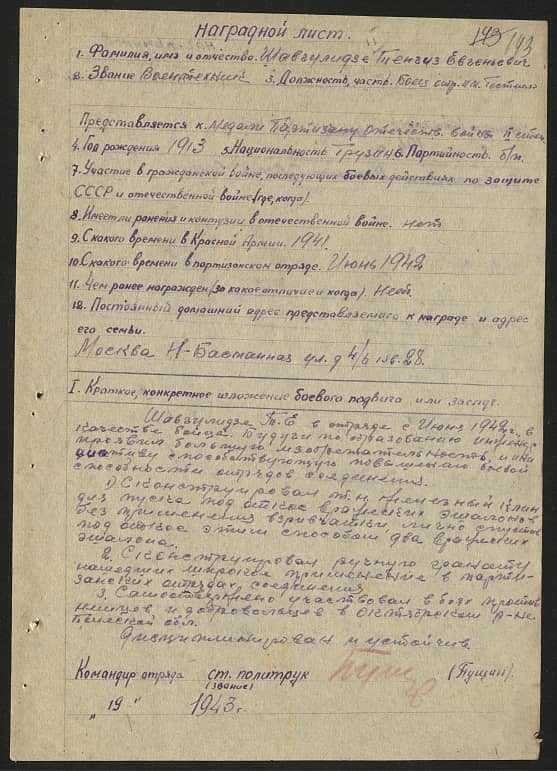 Наградной лист.
193 193
1. Фамилия, имя и отчество. Шавгулидзе Тенгиз Евгеньевич
2. Звание Воентехник 3. Должность, часть. Боец отр. им.
Представляется к. Медали Партизану Отечеств. войны II степ.
4. Год рождения 1913 5. Национальность Грузин 6. Партийность. б/п.
7. Участие в гражданской войне, последующих боевых действиях по защите
СССР и отечественной войне (где, когда).
8. Имеет ли ранения и контузии в отечественной войне. нет
9. С какого времени в Красной Армии. 1941.
10. С какого времени в партизанском отряде. Июнь 1942
11. Чем ранее награжден (за какое отличие и когда). Нет.
12. Постоянный домашний адрес представляемого к награде и адрес
его семьи.
Москва Н-Басманная ул. д 4/6 кв. 28.
I. Краткое, конкретное изложение боевого подвига или заслуг.
Шавгулидзе Т.Е. в отряде с Июня 1942г. в
качестве бойца. Будучи по образованию инженер
проявил большую изобретательность и ини
циативу способствующую повышению боевой
способности отрядов соединения.
1) Сконструировал т.н. клин
для пуска под откос вражеских эшалонов
без применения взрывчатки, лично спустив
под откос этим способом два вражеских
эшалона.
2. Сконструировал ручную гранату
нашедших широкое применение в парти-
занских отрядах, соединения.
3. Самоотверженно участвовал в боях против
немцев и добровольцев в Октябрьском р-не
Дисциплинирован и устойчив.
Командир отряда ст. политрук (Пущин).
(звание)
„19" 1943 г.